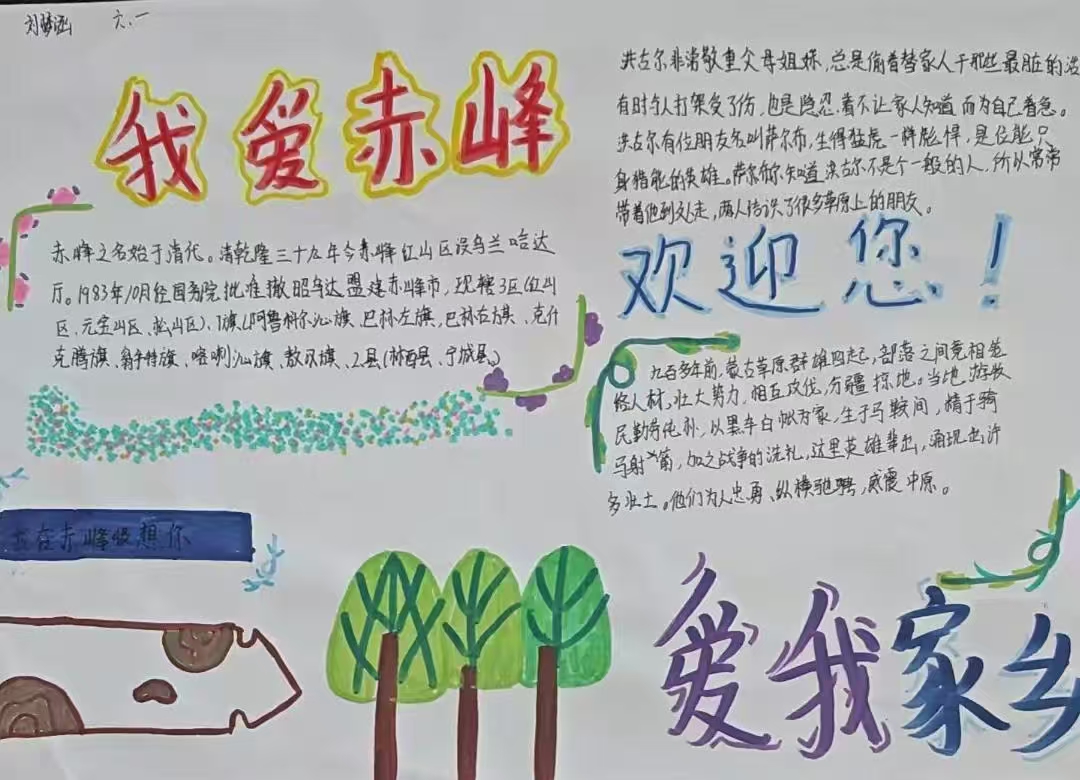 刘梦涵 六.一
我爱赤峰
赤峰之名始于清代。清乾隆三十九年今赤峰红山区设乌兰哈达
厅。1983年10月经国务院批准撤昭乌达盟建赤峰市，现辖3区(红山
区、元宝山区、松山区)、7旗(阿鲁科尔沁旗、巴林左旗、巴林右旗、克什
克腾旗、翁牛特旗、喀喇沁旗、敖汉旗、2县(林西县、宁城县。)
我在赤峰很想你
洪古尔非常敬重父母姐妹，总是偷着替家人干那些最脏的活
有时与人打架受了伤，也是隐忍着不让家人知道而为自己着急。
洪古尔有位朋友名叫萨尔布，生得猛虎一样彪悍，是位能只
身猎熊的英雄。萨尔布知道洪古尔不是个一般的人，所以常常
带着他到处走，两人结识了很多草原上的朋友。
欢迎您！
九百多年前，蒙古草原群雄四起，部落之间竞相笼
络人材，壮大势力，相互攻伐，分疆掠地。当地游牧
民勤劳纯朴，以黑车白帐为家，生于马鞍间，精于骑
马射箭，加之战争的洗礼，这里英雄辈出，涌现出许
多壮士。他们为人忠勇、纵横驰骋，威震中原。
爱我家乡